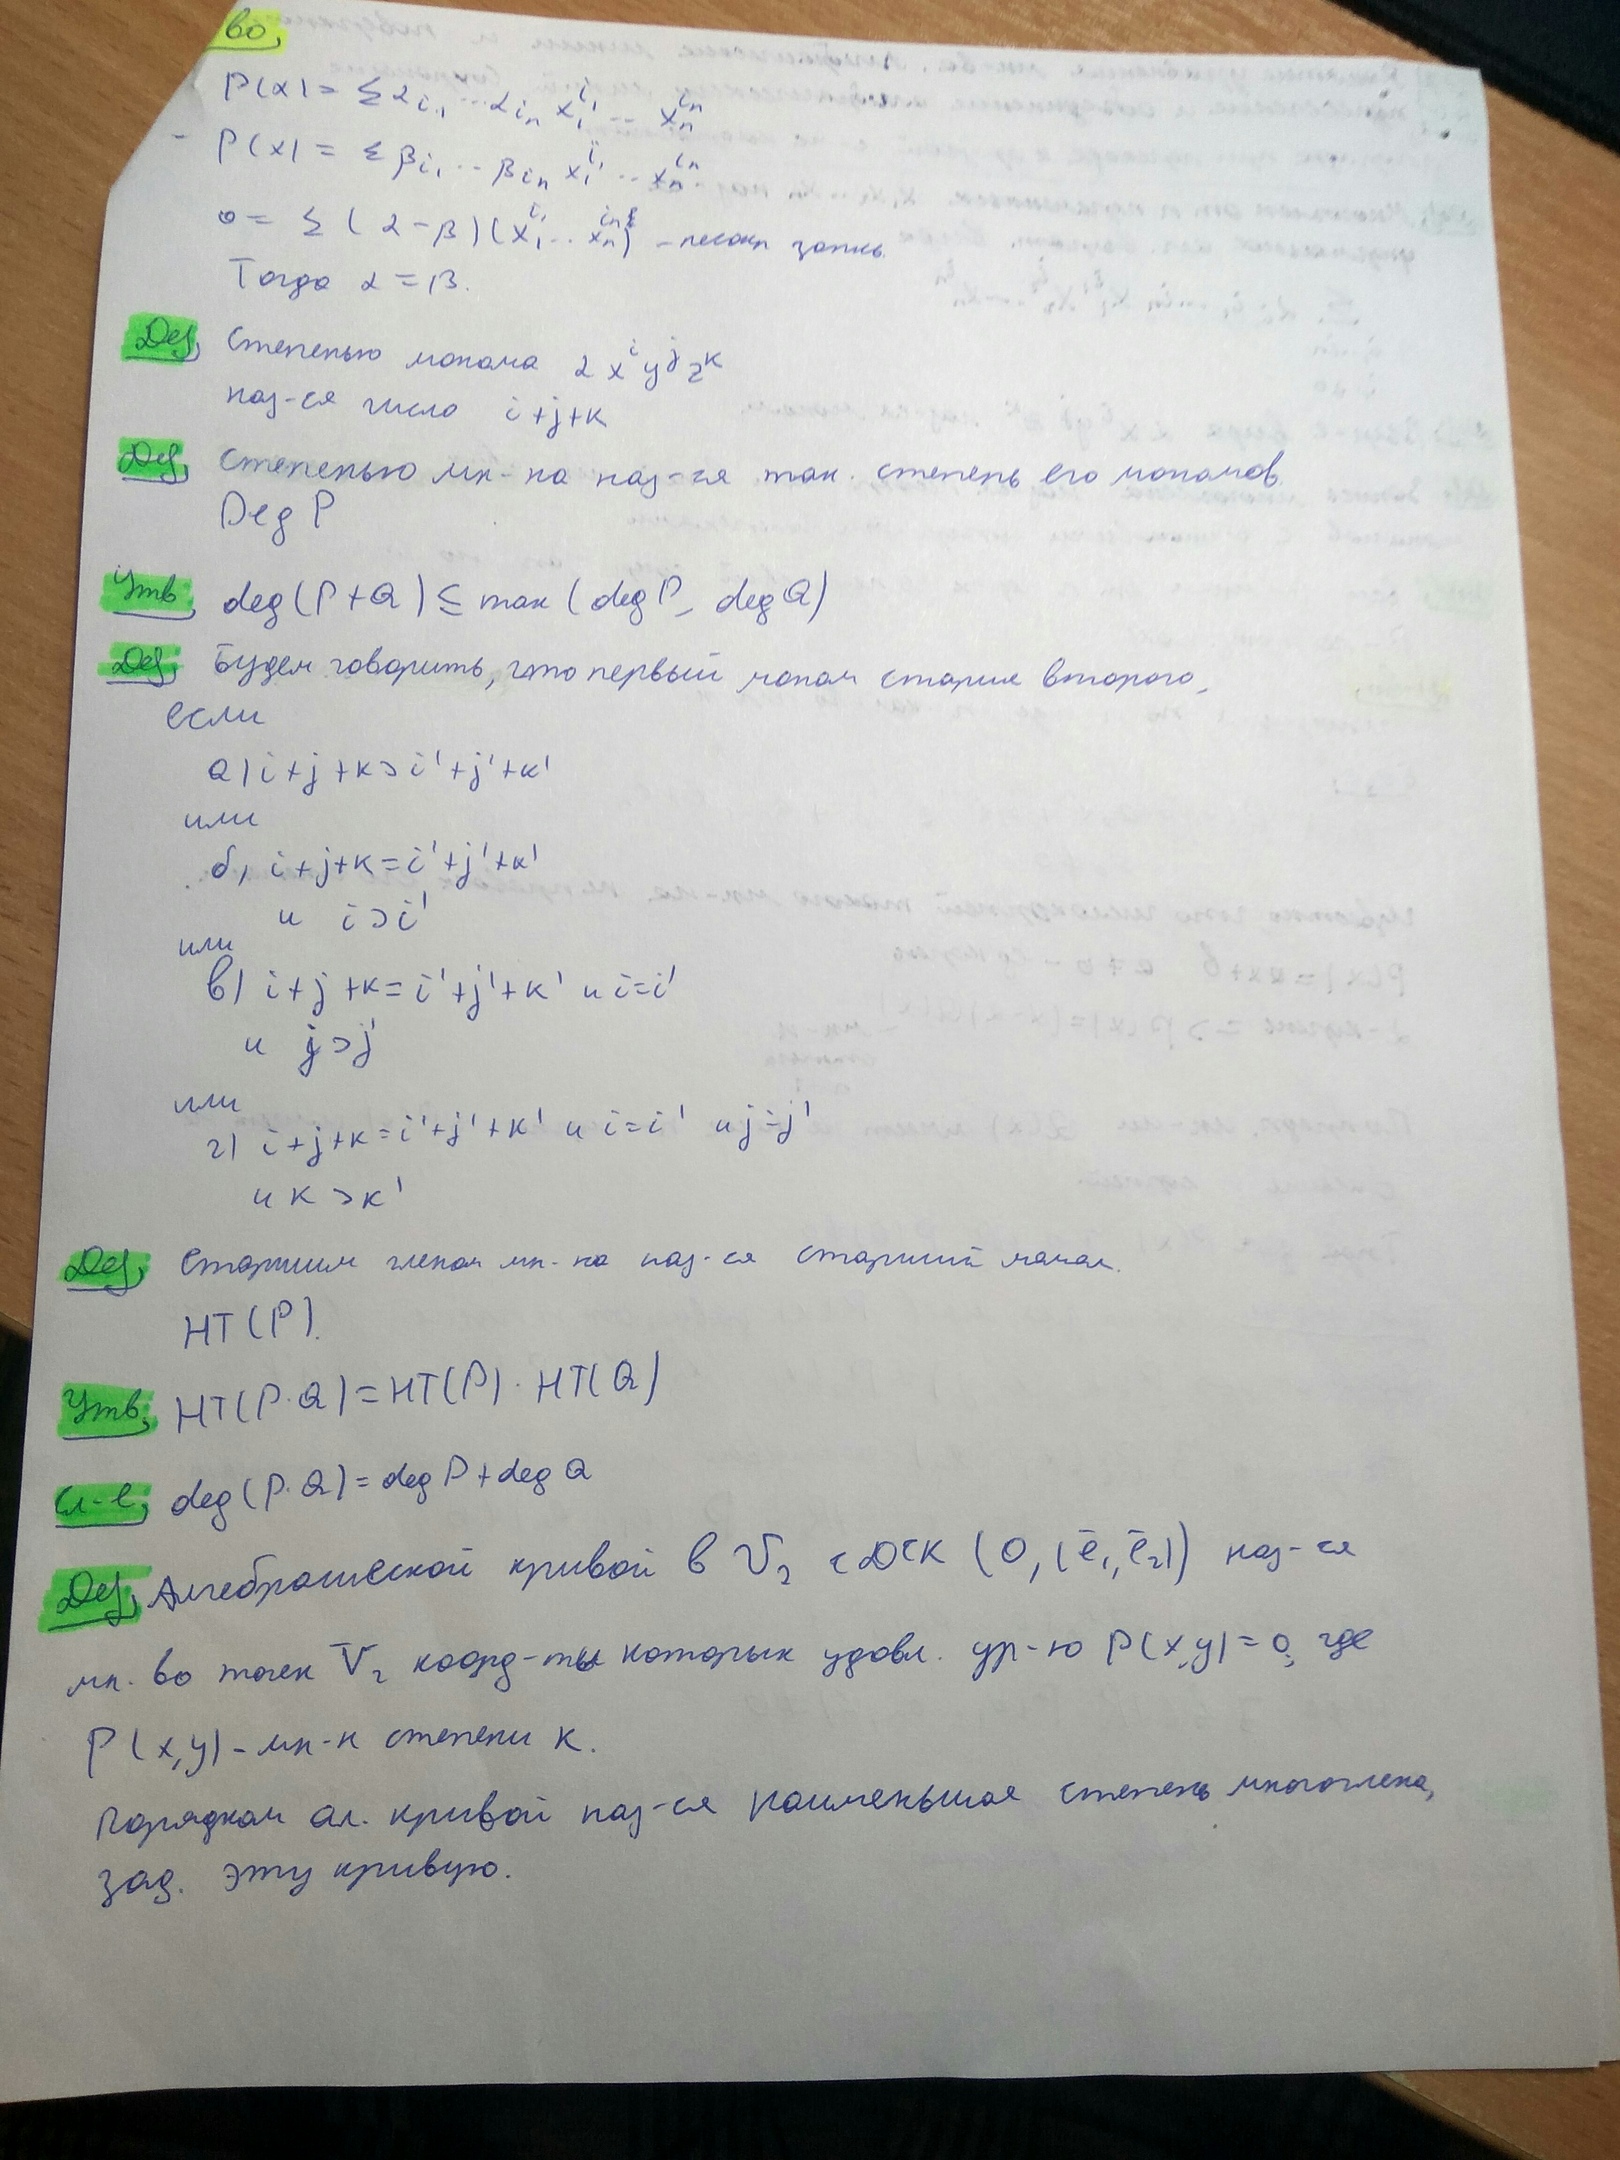 во,
P(x) = Σ α i₁ ... α iₙ x₁^i₁ ... xₙ^iₙ
- P(x) = Σ β i₁ ... β iₙ x₁^i₁ ... xₙ^iₙ
0 = Σ (α - β)(x₁^i₁ ... xₙ^iₙ) - несокр запись.
Тогда α = β.
Def, Степенью монома α x^i y^j z^k
наз-ся число i+j+k
Def, Степенью мн-на наз-ся max. степень его мономов.
Deg P
Утв, deg(P+Q) ≤ max (deg P, deg Q)
Def, Будем говорить, что первый моном старше второго,
если
а) i+j+k > i'+j'+k'
или
б, i+j+k = i'+j'+k'
и i > i'
или
в) i+j+k = i'+j'+k' и i=i'
и j > j'
или
г) i+j+k = i'+j'+k' и i=i' и j=j'
и k > k'
Def, Старшим членом мн-на наз-ся старший моном.
HT(P).
Утв, HT(P·Q) = HT(P) · HT(Q)
Сл-е, deg(P·Q) = deg P + deg Q
Def, Алгебраической кривой в V₂ с ДСК (O, (ē₁, ē₂)) наз-ся
мн-во точек V₂ коорд-ты которых удовл. ур-ю P(x,y) = 0, где
P(x,y) - мн-н степени k.
Порядком ал. кривой наз-ся наименьшая степень многочлена,
зад. эту кривую.